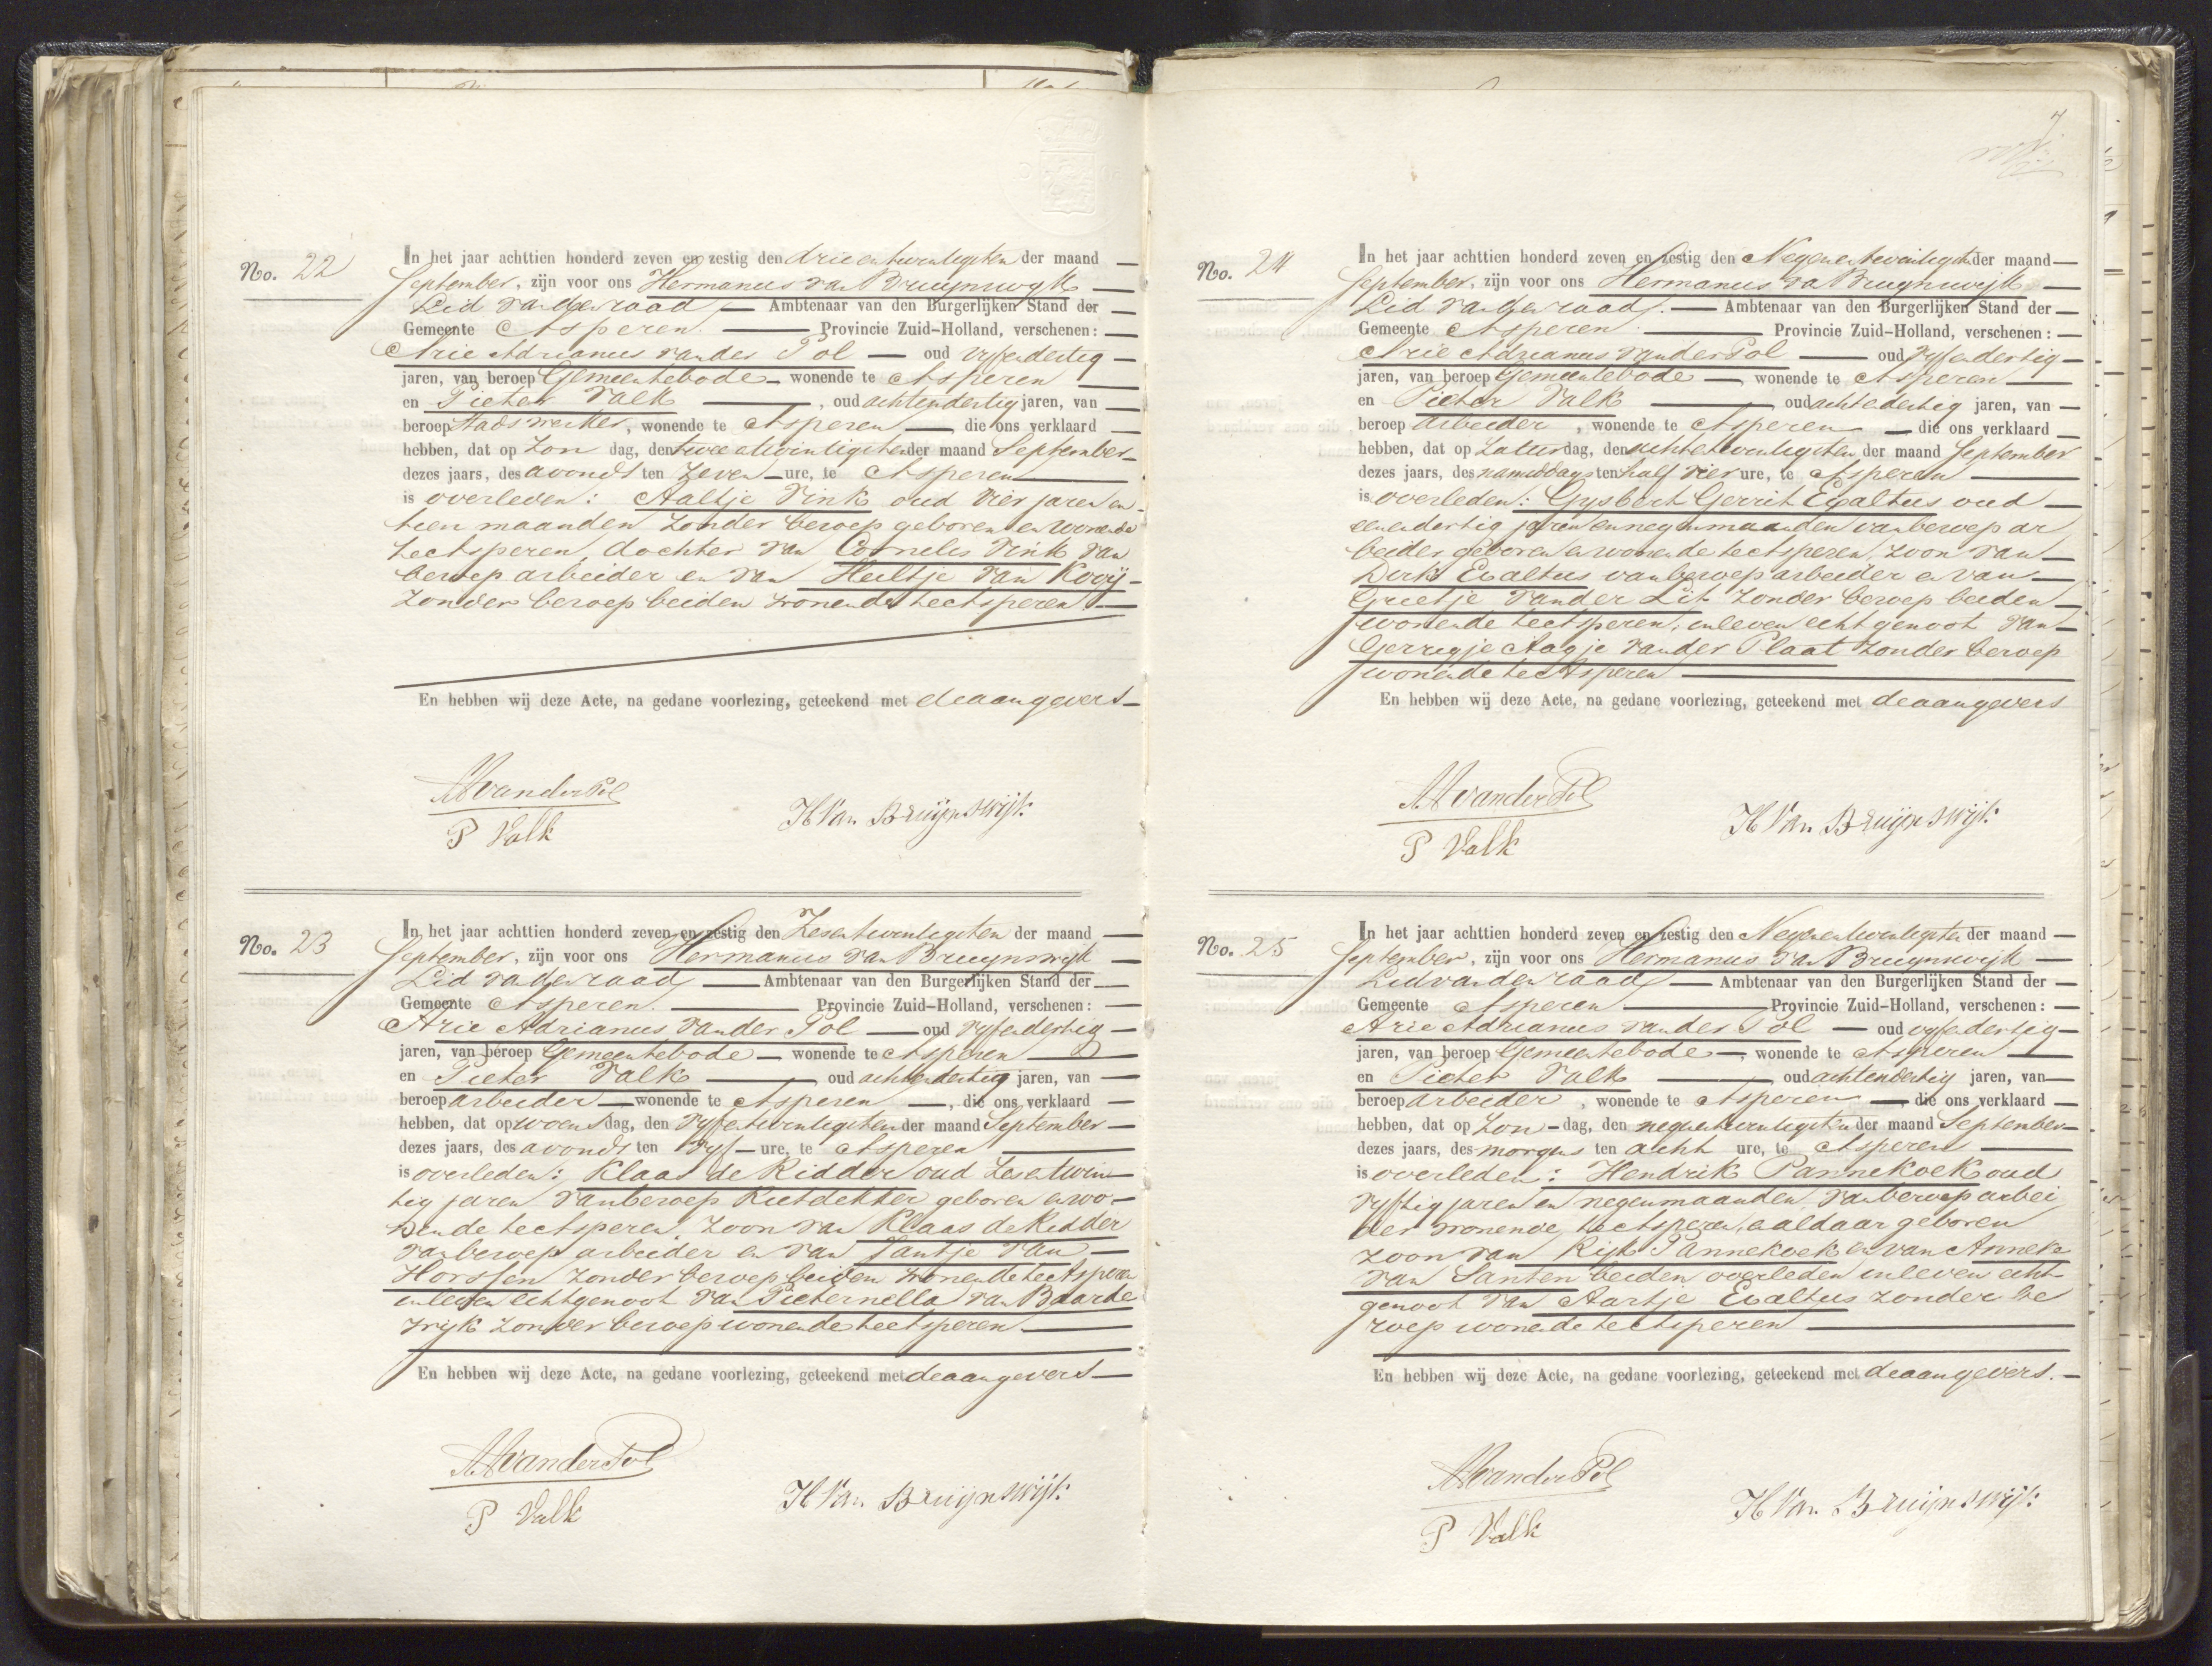 No. 22
In het jaar achttien honderd zeven en zestig den drieentwintigsten der maand
September, zijn voor ons Hermanus van Bruijnswijk
Lid van den raad Ambtenaar van den Burgerlijken Stand der
Gemeente Asperen Provincie Zuid-Holland, verschenen:
Arie Adrianus van der Pol oud vyfendertig
jaren, van beroep Gemeentebode wonende te Asperen
en Pieter Valk, oud achtendertig jaren, van
beroep stadswerker, wonende te Asperen die ons verklaard
hebben, dat op Zon dag, den tweeentwintigsten der maand September
dezes jaars, des avonds ten zeven ure, te Asperen
is overleden: Aaltje Vink oud vier jaren en
tien maanden zonder beroep geboren en wonende
te Asperen, dochter van Cornelis Vink van
beroep arbeider en van Heiltje van Kooij
zonder beroep beiden wonende te Asperen
En hebben wij deze Acte, na gedane voorlezing, geteekend met de aangevers
AAvanderPol
P Valk
H Van Bruijnswijk
No. 23
In het jaar achttien honderd zeven en zestig den Zesentwintigsten der maand
September, zijn voor ons Hermanus van Bruijnswijk
Lid van den raad Ambtenaar van den Burgerlijken Stand der
Gemeente Asperen Provincie Zuid-Holland, verschenen:
Arie Adrianus van der Pol oud vyfendertig
jaren, van beroep Gemeentebode wonende te Asperen
en Pieter Valk oud achtendertig jaren, van
beroep arbeider wonende te Asperen, die ons verklaard
hebben, dat op woensdag, den vyfentwintigsten der maand September
dezes jaars, des avonds ten vyf ure, te Asperen
is overleden: Klaas de Ridder oud zesentwin
tig jaren van beroep Rietdekker geboren en wo-
nende te Asperen, zoon van Klaas de Ridder
van beroep arbeider en van Jantje van
Horssen zonder beroep beiden wonende te Asperen
in leven echtgenoot van Pieternella van Baarde
wijk zonder beroep wonende te Asperen
En hebben wij deze Acte, na gedane voorlezing, geteekend met de aangevers
AAvanderPol
P Valk
H Van Bruijnswijk
7
No. 24
In het jaar achttien honderd zeven en zestig den Negenentwintigsten der maand
September, zijn voor ons Hermanus van Bruijnswijk
Lid van den raad. Ambtenaar van den Burgerlijken Stand der
Gemeente Asperen Provincie Zuid-Holland, verschenen:
Arie Adrianus van der Pol oud vyfendertig
jaren, van beroep Gemeentebode, wonende te Asperen
en Pieter Valk oud achtendertig jaren, van
beroep arbeider, wonende te Asperen die ons verklaard
hebben, dat op Zaturdag, den achtentwintigsten der maand September
dezes jaars, des namiddags ten half vier ure, te Asperen
is overleden: Gysbert Gerrit Exaltus oud
eenendertig jaren en negen maanden van beroep ar
beider geboren en wonende te Asperen, zoon van
Dirk Exaltus van beroep arbeider en van
Grietje van der Lit zonder beroep beiden
wonende te Asperen, in leven echtgenoot van
Gerrigje Aagje van der Plaat zonder beroep
wonende te Asperen
En hebben wij deze Acte, na gedane voorlezing, geteekend met de aangevers
AAvanderPol
P Valk
H Van Bruijnswijk
No. 25
In het jaar achttien honderd zeven en zestig den Negenentwintigsten der maand
September, zijn voor ons Hermanus van Bruijnswijk
Lid van den raad Ambtenaar van den Burgerlijken Stand der
Gemeente Asperen Provincie Zuid-Holland, verschenen:
Arie Adrianus van der Pol oud vyfendertig
jaren, van beroep Gemeentebode, wonende te Asperen
en Pieter Valk, oud achtendertig jaren, van
beroep arbeider, wonende te Asperen die ons verklaard
hebben, dat op Zon-dag, den negenentwintigsten der maand September
dezes jaars, des morgens ten acht ure, te Asperen
is overleden: Hendrik Pannekoek oud
vyftig jaren en negen maanden, van beroep arbei
der wonende te Asperen, en aldaar geboren
zoon van Rijk Pannekoek en van Anneke
van Santen beiden overleden in leven echt-
genoot van Aartje Exaltus zonder be
roep wonende te Asperen
En hebben wij deze Acte, na gedane voorlezing, geteekend met de aangevers.
AAvanderPol
P Valk
H Van Bruijnswijk